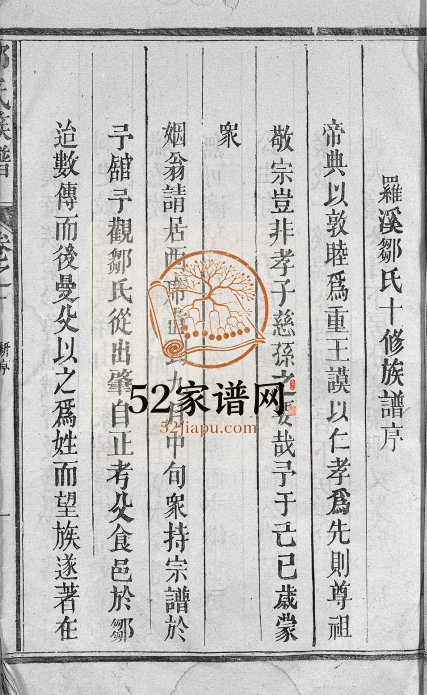 羅溪鄒氏十修族譜序
帝典以敦睦爲重王謨以仁孝爲先則尊祖
敬宗豈非孝子慈孫之要哉予于己巳歲蒙
衆
姻翁請居西席 九月中旬衆持宗譜於
予舘予觀鄒氏從出肇自正考父食邑於鄒
迨數傳而後曼父以之爲姓而望族遂著在
氏族譜
新序
52家谱网
52jiapu.com